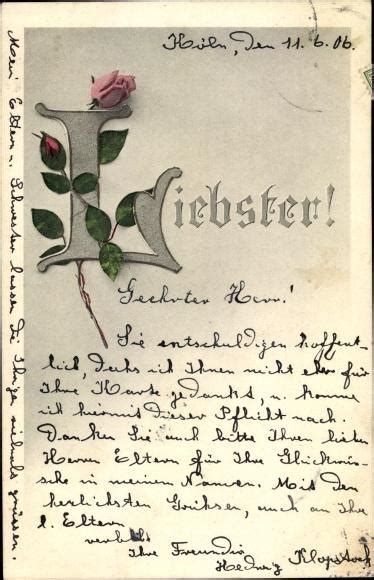 Köln, den 11.6.06.
Liebster!
Geehrter Herr!
Sie entschuldigen hoffent-
lich, dass ich Ihnen nicht eher für
Ihre Karte gedankt, u. komme
ich hiermit dieser Pflicht nach.
Danken Sie auch bitte Ihren lieben
Herren Eltern für Ihre Glückwün-
sche in meinem Namen. Mit den
herzlichsten Grüssen, auch an Ihre
l. Eltern
verbleibt
Ihre Freundin
Hedwig Klopstock
Mein Eltern u. Schwester lassen die Ihrigen vielmals grüssen.